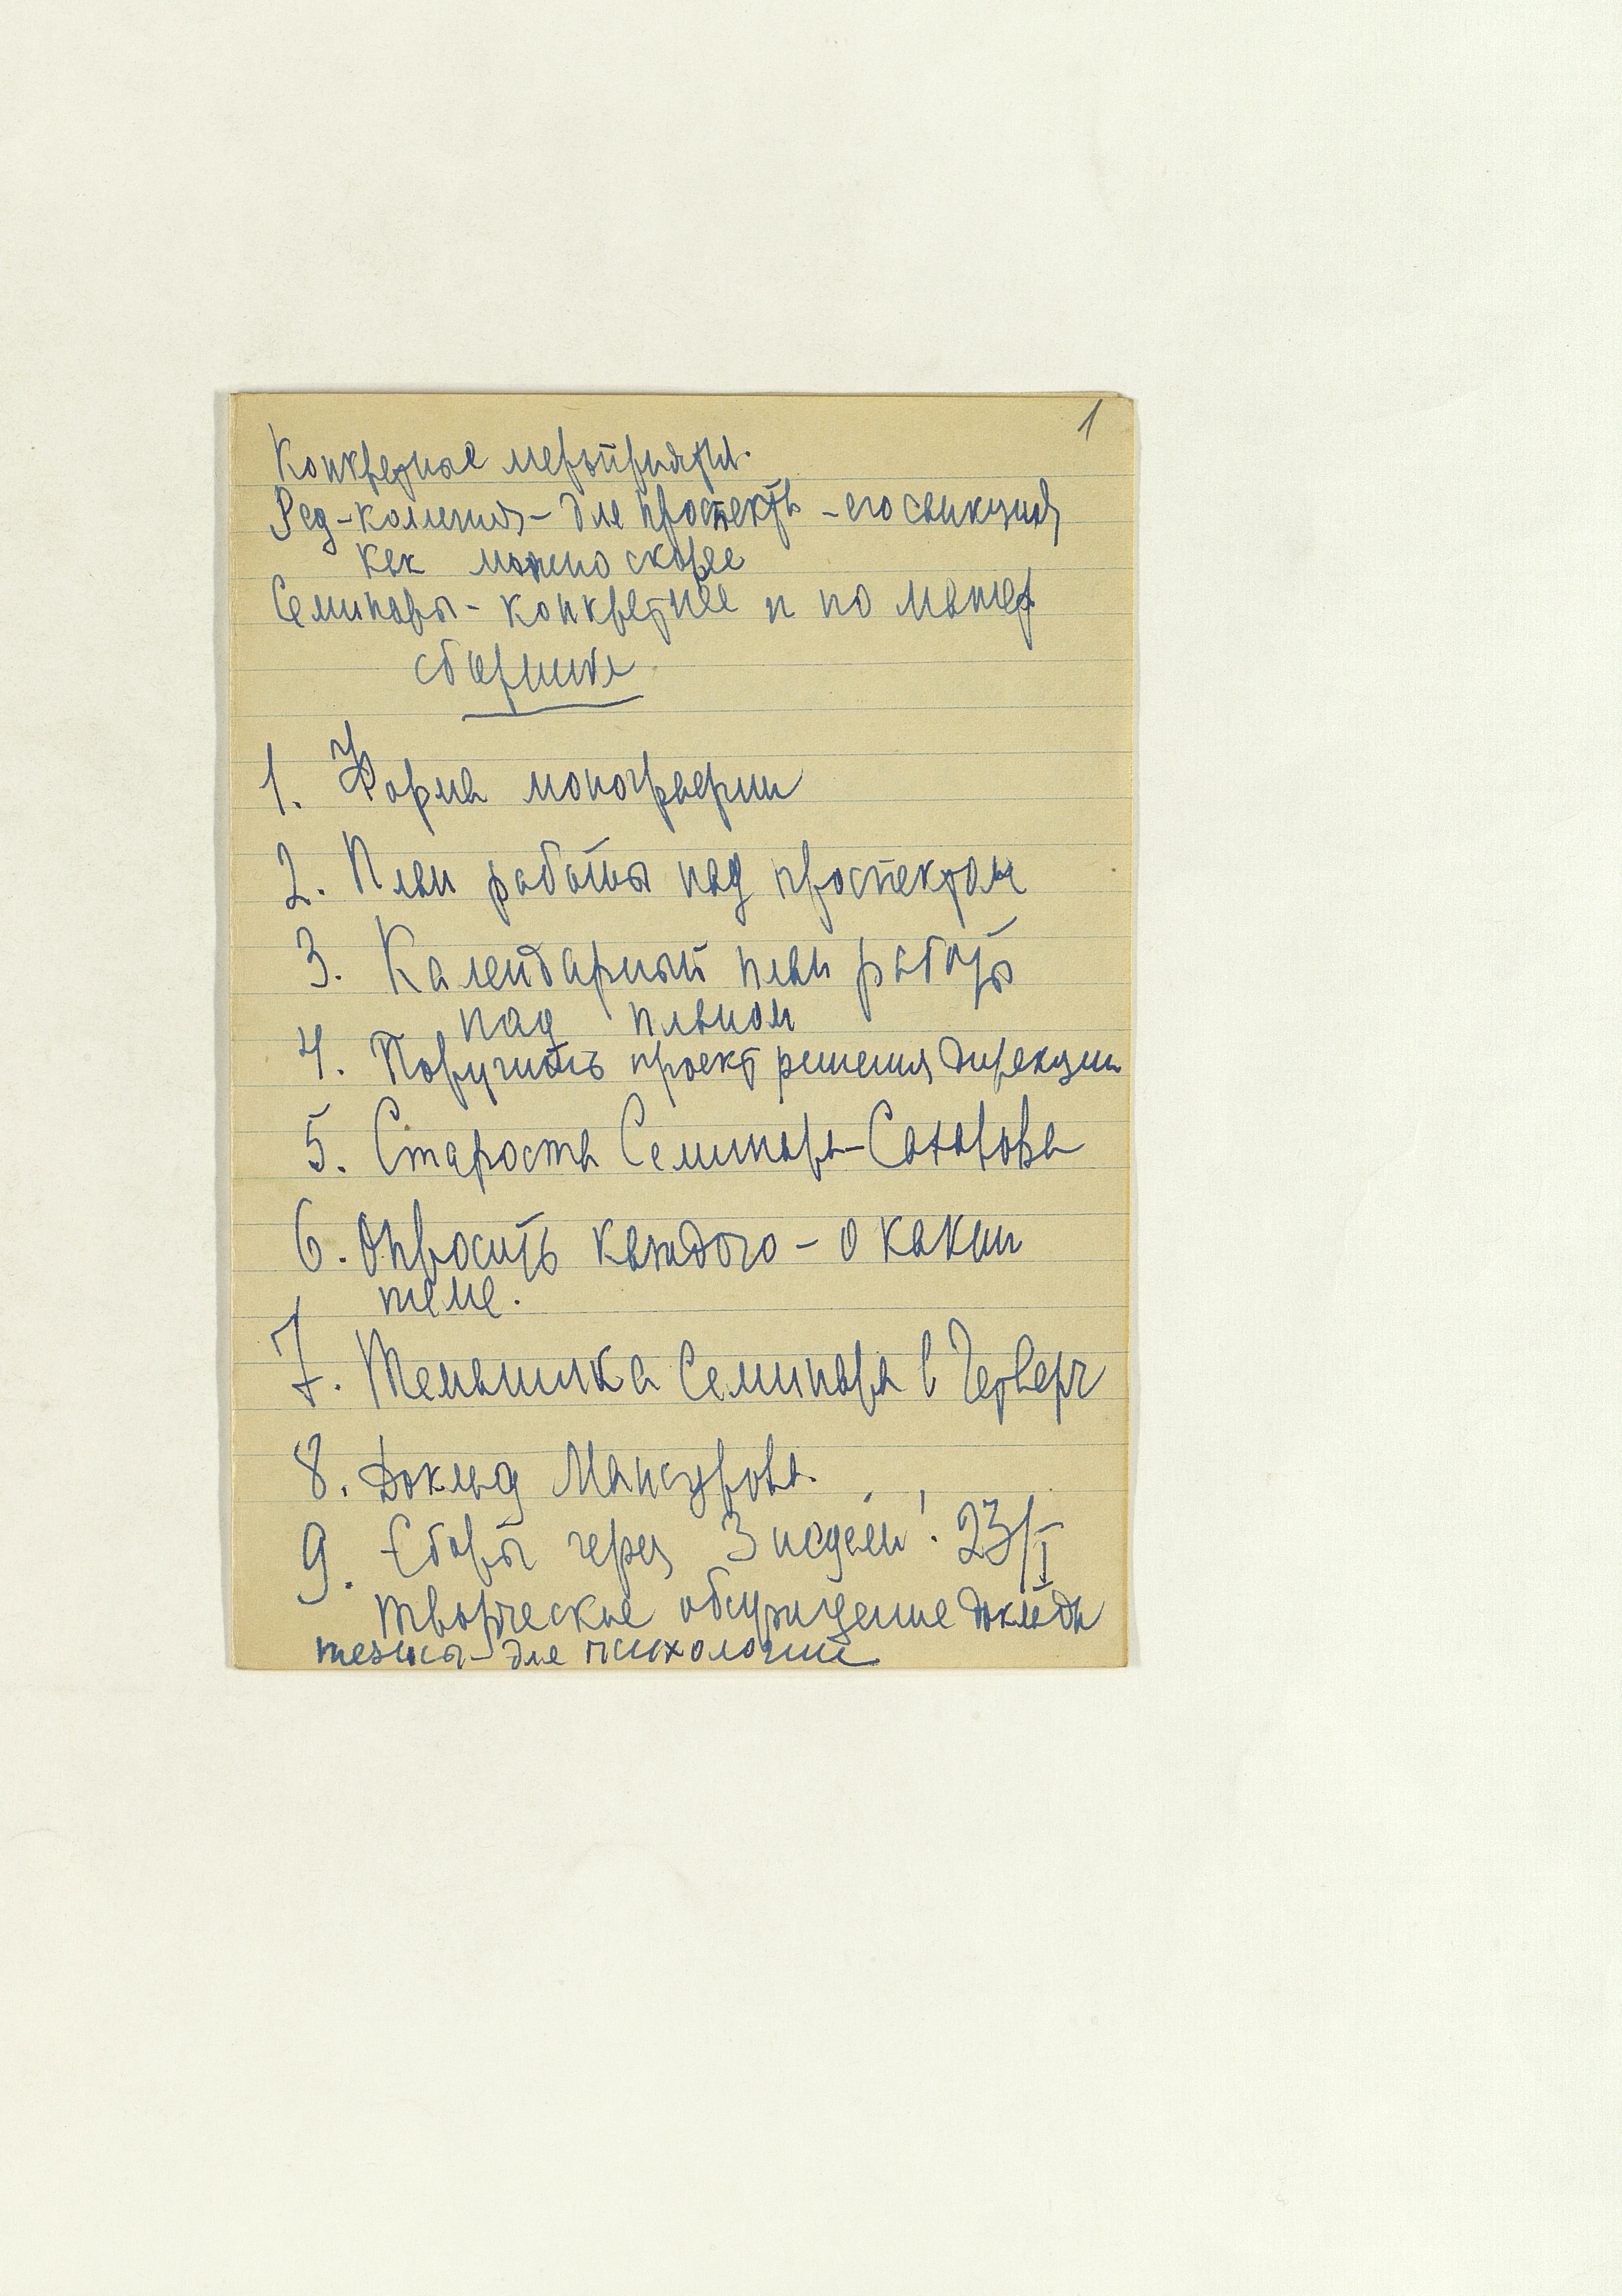 1
Конкретные мероприятия.
Ред-коллегия - для проспекта - его санкция
как можно скорее
Семинары - конкретнее и по матер
сборника
1. Форма монографии
2. План работы над проспектом
3. Календарный план работы
над планом
4. Поручить проект решения дирекции
5. Староста Семинара - Сахарова
6. Опросить каждого - о какой
теме.
7. Тематика Семинара в Четверг
8. Доклад Мансурова.
9. Сборы через 3 недели! 23/I
творческое обсуждение доклада
тезисы - для психологии